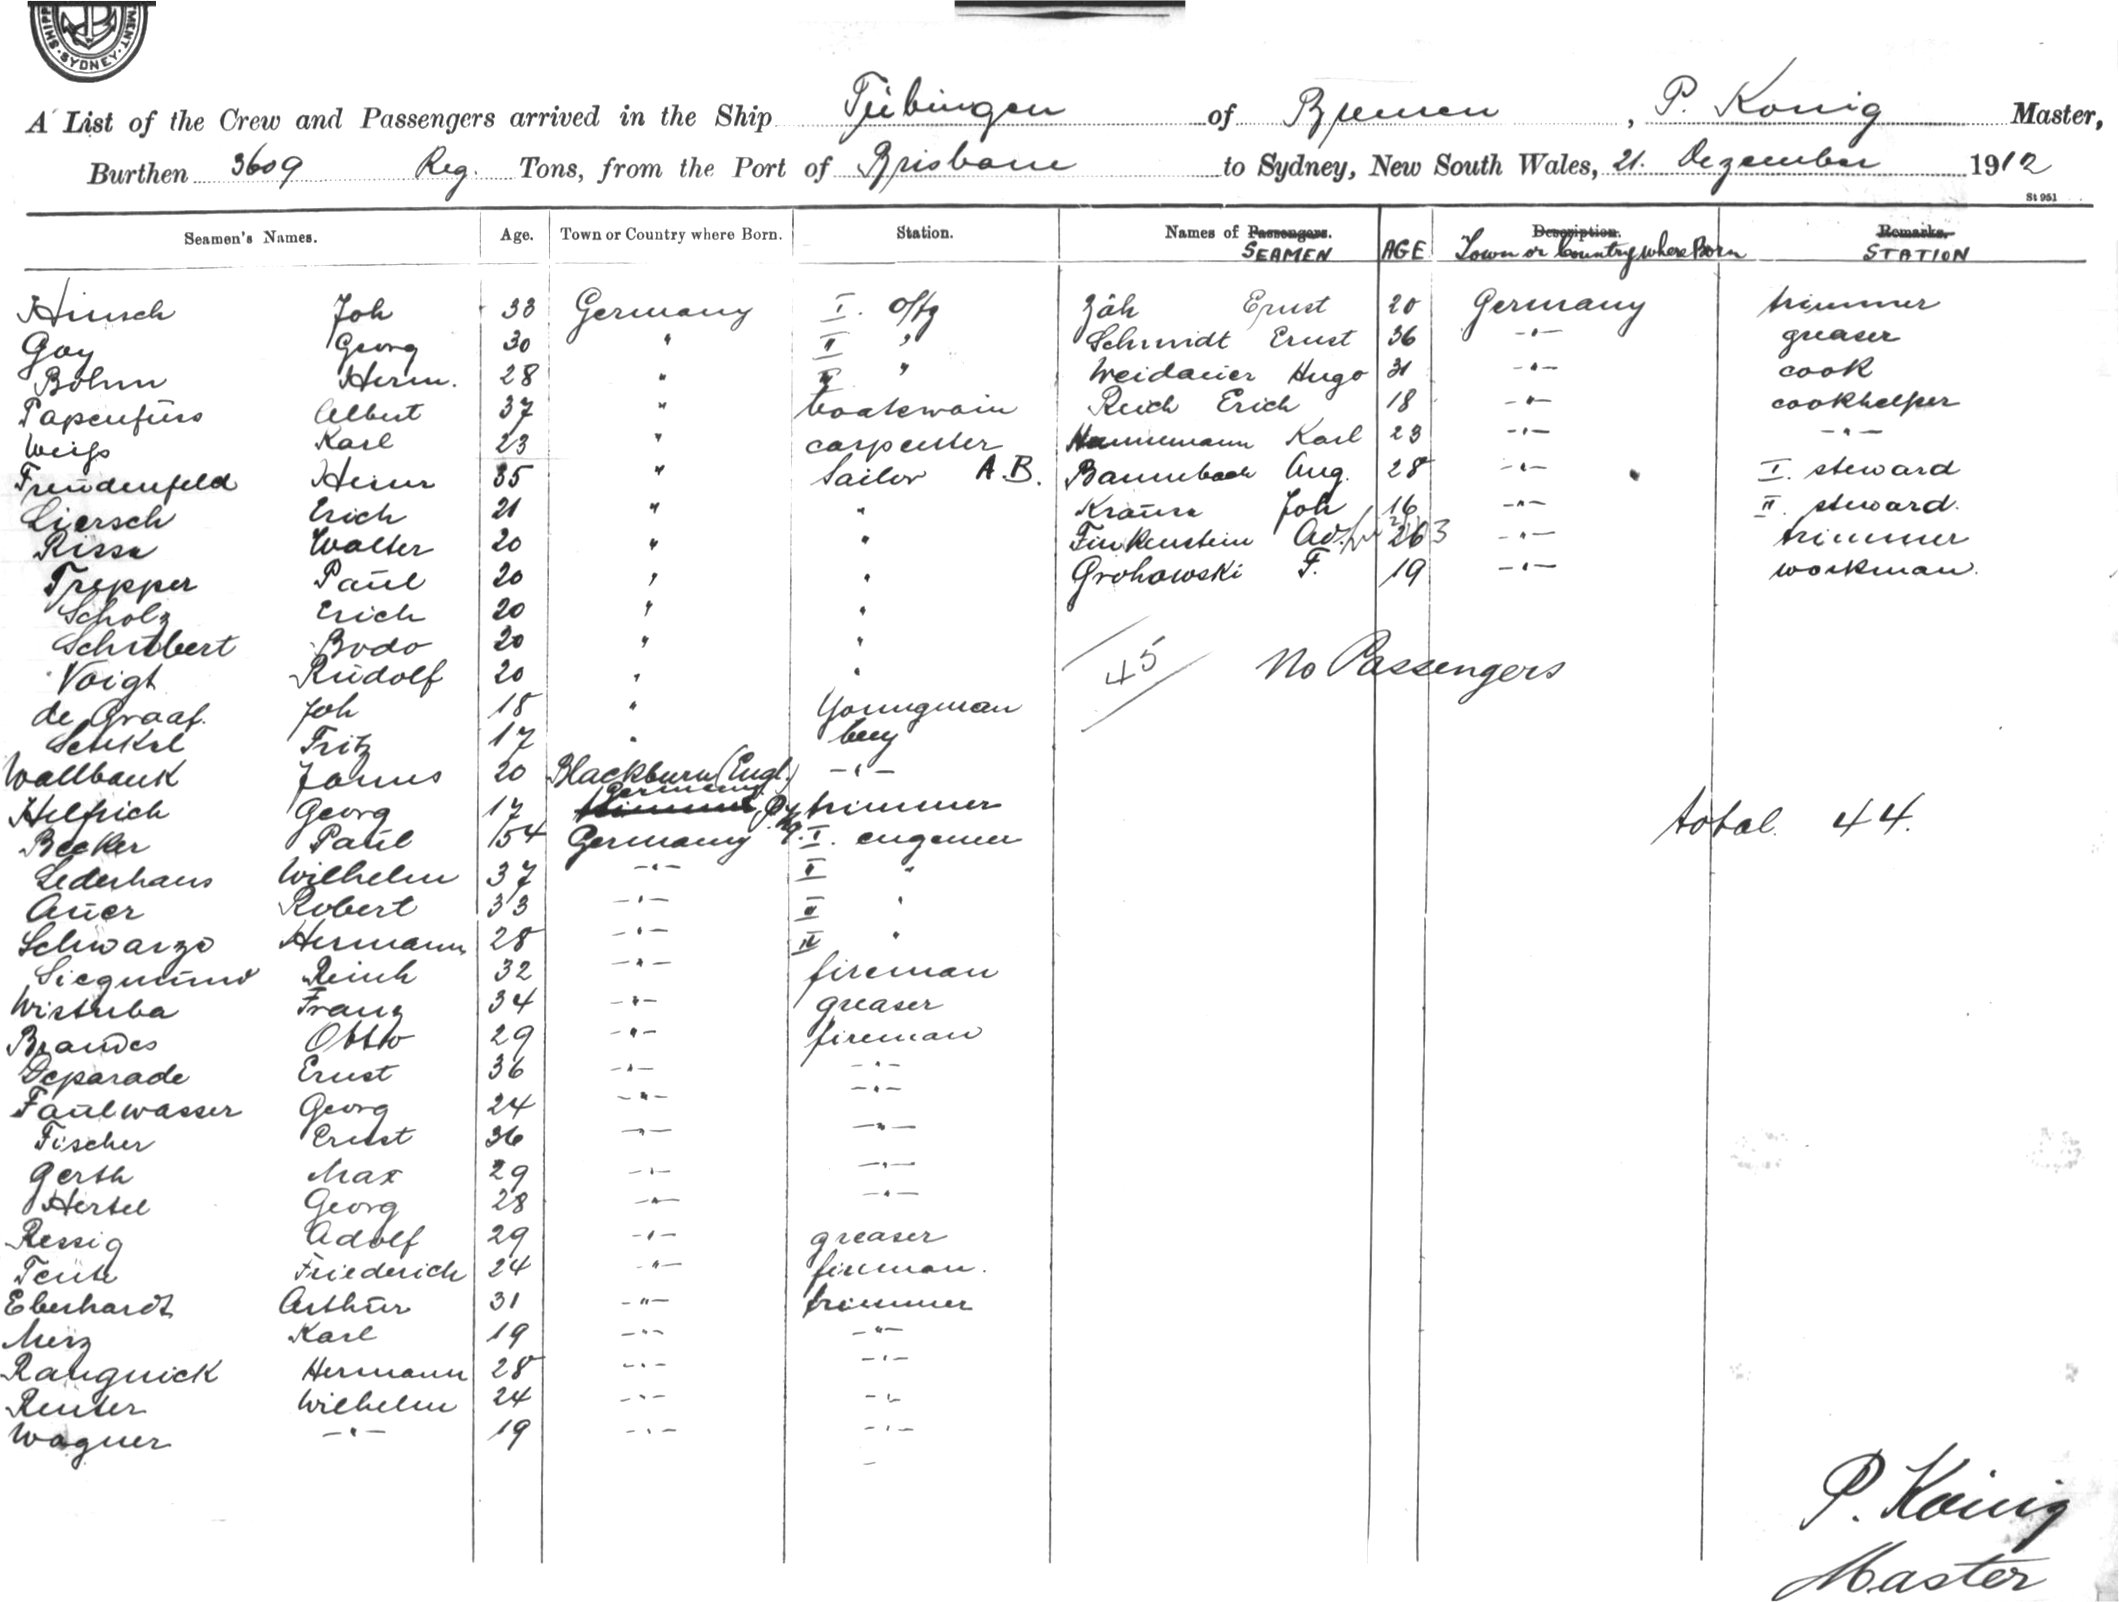 SHIPP MENT · SYDNEY ·
A List of the Crew and Passengers arrived in the Ship Tübingen of Bremen, P. König Master,
Burthen 3609 Reg. Tons, from the Port of Brisbane to Sydney, New South Wales, 21. Dezember 1912
St 951
Seamen's Names. Age. Town or Country where Born. Station. Names of Passengers. SEAMEN AGE Description. Town or Country where Born Remarks. STATION
Hinsch Joh 33 Germany I. Offz Zäh Ernst 20 Germany trimmer
Goy Georg 30 " II " Schmidt Ernst 36 -"- greaser
Böhm Herm. 28 " " Weidauer Hugo 31 -"- cook
Papenfuss Albert 37 " boatswain Reich Erich 18 -"- cookhelper
Weiss Karl 23 " carpenter Hannemann Karl 23 -"- -"-
Freudenfeld Heinr 35 " Sailor A.B. Bannebach Aug. 28 -"- I. steward
Liersch Erich 21 " " Krause Joh 16 -"- II. steward.
Risse Walter 20 " " Finkenstein 263 -"- trimmer
Trepper Paul 20 " " Grohowski F. 19 -"- workman.
Scholz Erich 20 " "
Schubert Bodo 20 " "
Voigt Rudolf 20 " "
45 No Passengers
de Graaf. Joh 18 " Youngman
Schkel Fritz 17 " boy
Wallbank James 20 Blackburn (Engl.) -"-
Helfrich Georg 17 Germany trimmer
total 44.
Becker Paul 54 Germany I. engeneer
Lederhaus Wilhelm 37 -"- II "
Auer Robert 33 -"- "
Schwarze Hermann 28 -"- IV "
Siegmund Reinh 32 -"- fireman
Wistuba Franz 34 -"- greaser
Brandes Otto 29 -"- fireman
Deparade Ernst 36 -"- -"-
Faulwasser Georg 24 -"- -"-
Fischer Ernst 36 -"- -"-
Gerth Max 29 -"- -"-
Hertel Georg 28 -"- -"-
Ressig Adolf 29 -"- greaser
Friederich 24 -"- fireman.
Eberhardt Arthur 31 -"- trimmer
Merz Karl 19 -"- -"-
Ranguick Hermann 28 -"- -"-
Reuter Wilhelm 24 -"- -"-
Wagner -"- 19 -"- -"-
P. König
Master